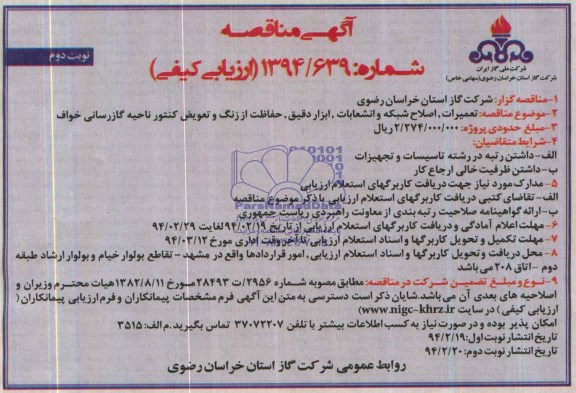 آگهی مناقصه
شماره: ۱۳۹۴/۶۳۹ (ارزیابی کیفی)
نوبت دوم
شرکت ملی گاز ایران
شرکت گاز استان خراسان رضوی (سهامی خاص)
۱- مناقصه گزار: شرکت گاز استان خراسان رضوی
۲- موضوع مناقصه: تعمیرات، اصلاح شبکه و انشعابات، ابزار دقیق، حفاظت از زنگ و تعویض کنتور ناحیه گازرسانی خواف
۳- مبلغ حدودی پروژه: ۲/۲۷۴/۰۰۰/۰۰۰ ریال
۴- شرایط متقاضیان:
الف- داشتن رتبه در رشته تاسیسات و تجهیزات
ب- داشتن ظرفیت خالی ارجاع کار
۵- مدارک مورد نیاز جهت دریافت کاربرگهای استعلام ارزیابی
الف- تقاضای کتبی دریافت کاربرگهای استعلام ارزیابی با ذکر موضوع مناقصه
ب- ارائه گواهینامه صلاحیت رتبه بندی از معاونت راهبردی ریاست جمهوری
۶- مهلت اعلام آمادگی و دریافت کاربرگهای استعلام ارزیابی از تاریخ ۹۴/۰۲/۱۹ لغایت ۹۴/۰۲/۲۹
۷- مهلت تکمیل و تحویل کاربرگها و اسناد استعلام ارزیابی: تا آخر وقت اداری مورخ ۹۴/۰۳/۱۲
۸- محل دریافت و تحویل کاربرگها و اسناد استعلام ارزیابی، امور قراردادها واقع در مشهد - تقاطع بولوار خیام و بولوار ارشاد طبقه
دوم - اتاق ۲۰۸ می باشد
۹- نوع و مبلغ تضمین شرکت در مناقصه: مطابق مصوبه شماره ۲۹۵۶/ت ۲۸۴۹۳ مورخ ۱۳۸۲/۸/۱۱ هیات محترم وزیران و
اصلاحیه های بعدی آن می باشد. شایان ذکر است دسترسی به متن این آگهی فرم مشخصات پیمانکاران و فرم ارزیابی پیمانکاران (
ارزیابی کیفی) در سایت www.nigc-khrz.ir)
امکان پذیر بوده و در صورت نیاز به کسب اطلاعات بیشتر با تلفن ۳۷۰۷۲۲۰۷ تماس بگیرید. م الف: ۳۵۱۵
تاریخ انتشار نوبت اول: ۹۴/۲/۱۹
تاریخ انتشار نوبت دوم: ۹۴/۲/۲۰
روابط عمومی شرکت گاز استان خراسان رضوی
ParsNamadData